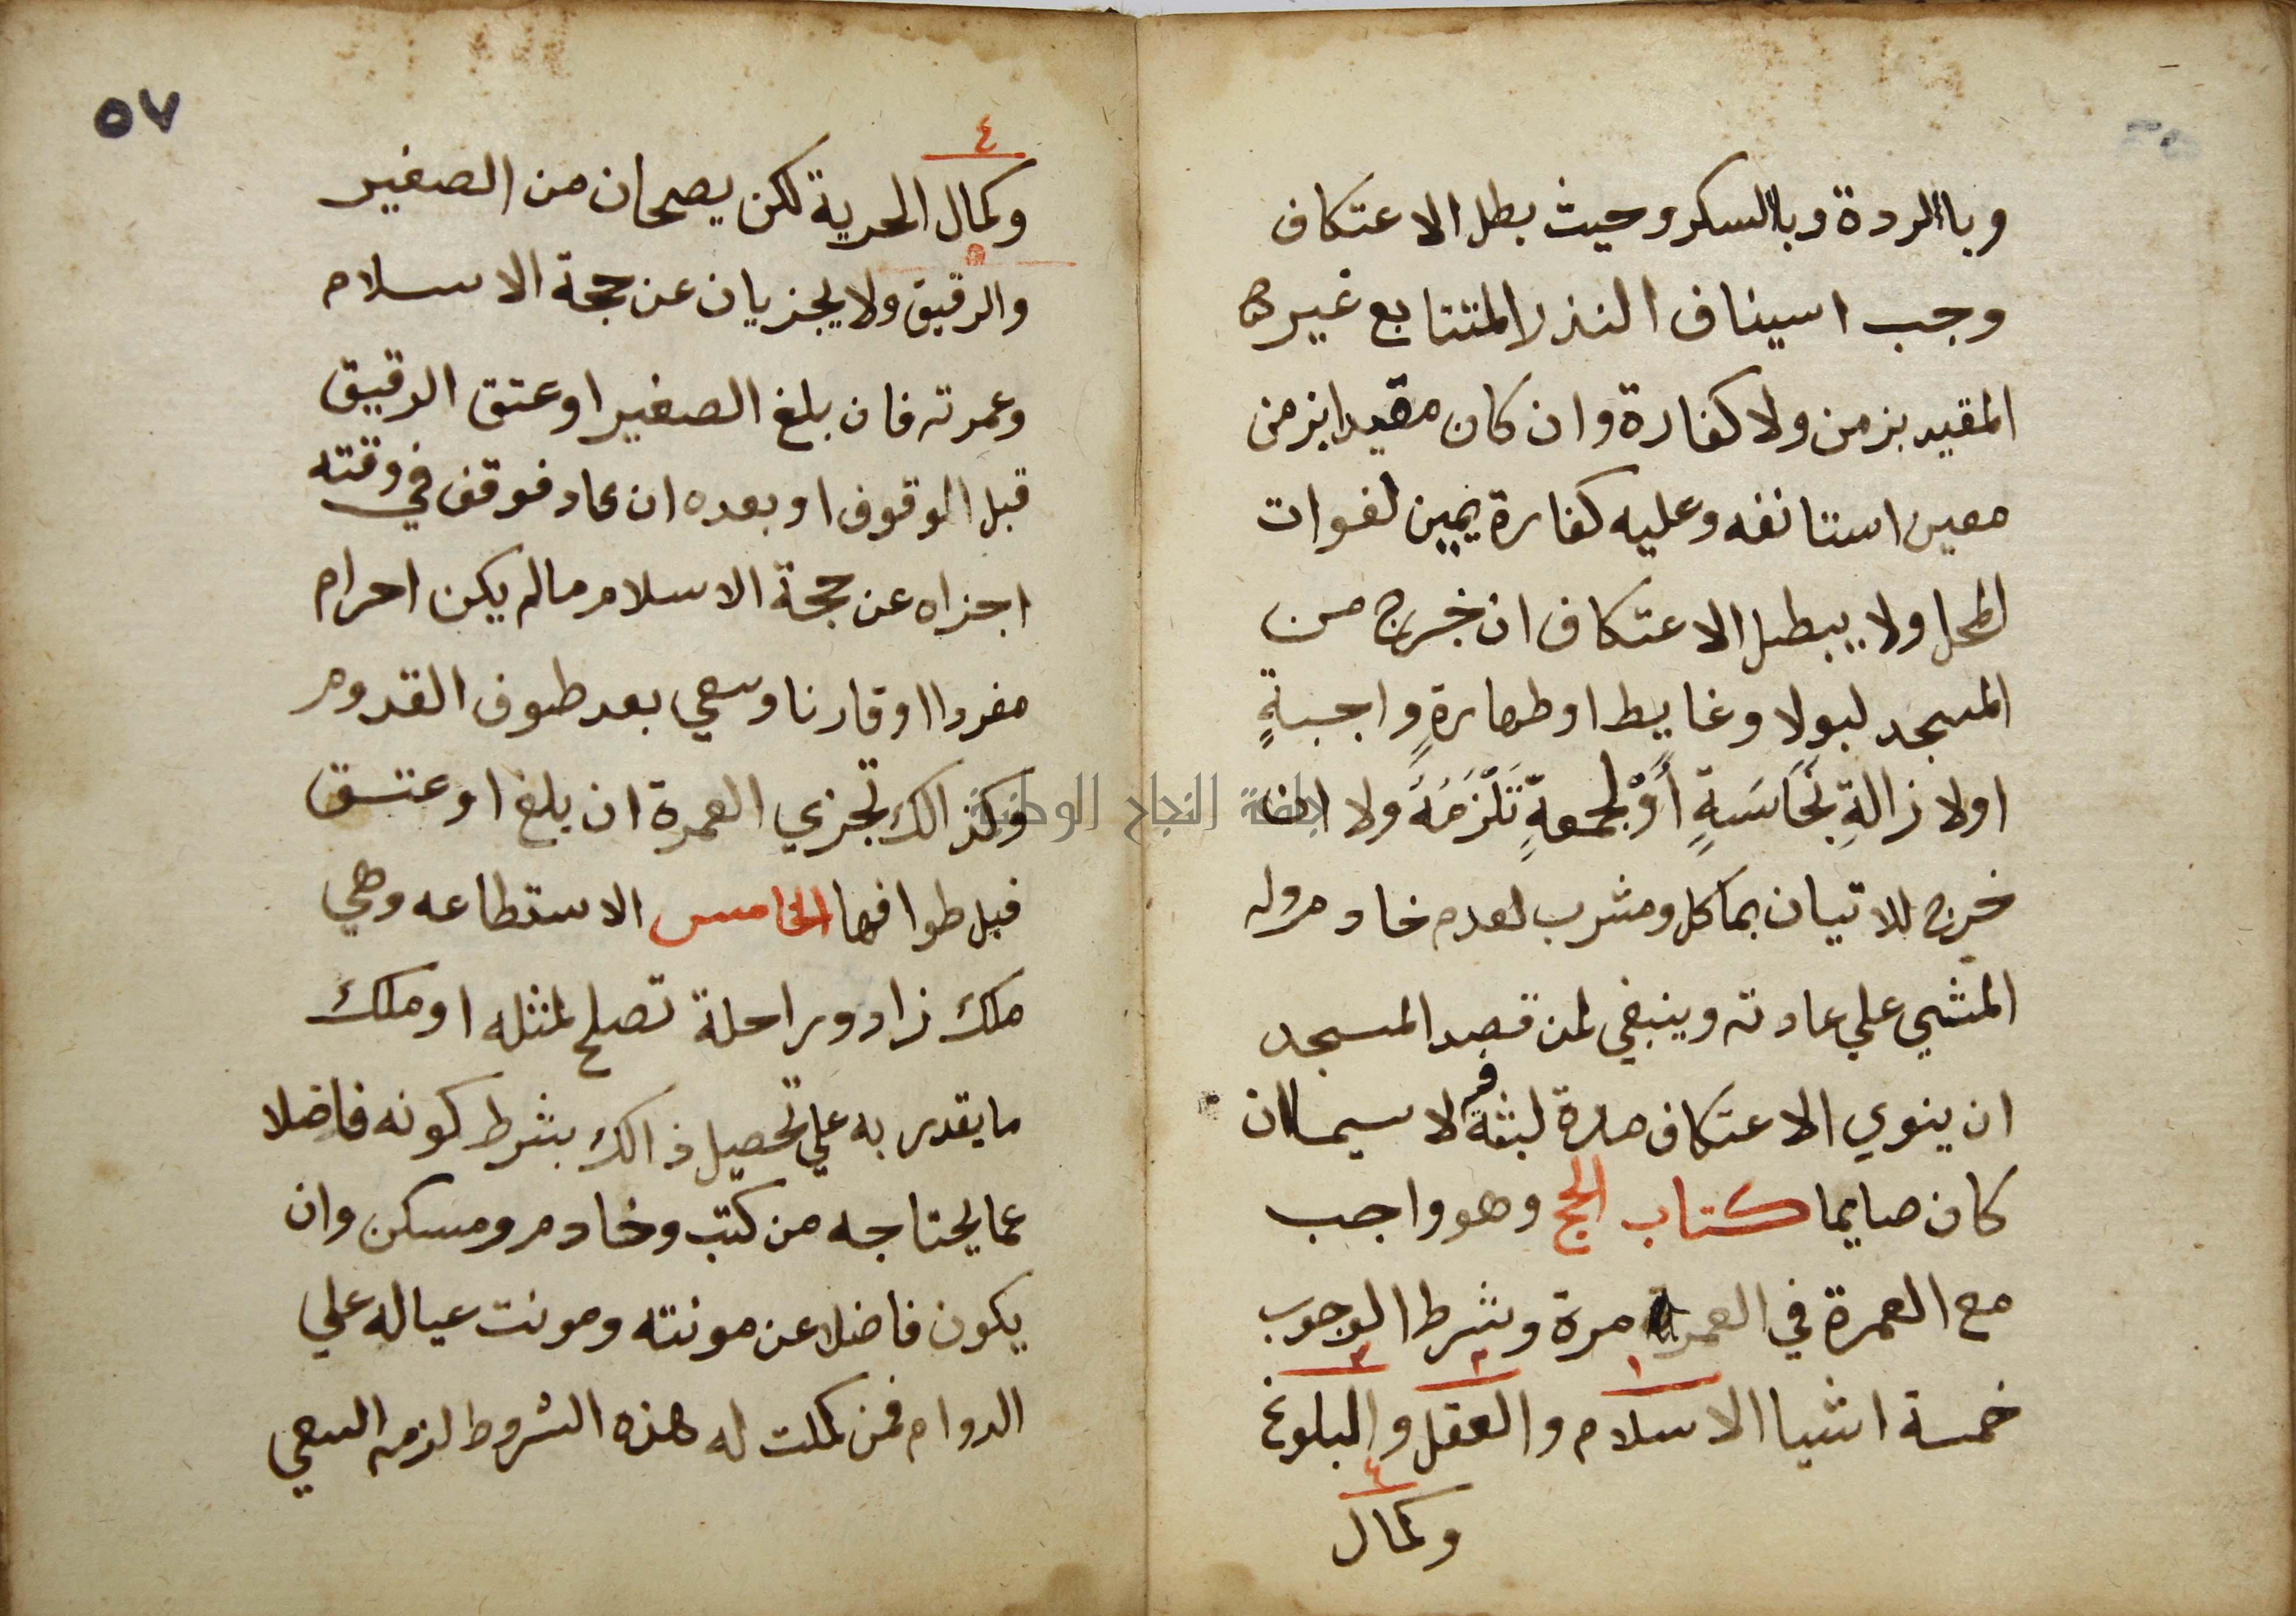 وبالردة وبالسكر وحيث بطل الاعتكاف
وجب اسيناف النذر المتتابع غير
المقيد بزمن ولا كفارة وان كان مقيدا بزمن
معين استانفه وعليه كفارة يمين لفوات
المحل ولا يبطل الاعتكاف ان خرج من
المسجد لبول او غايط او طهارةٍ واجبةٍ
او لازالةِ نَجَاسَةٍ أَوْ لجمعةٍ تَلْزَمَهُ ولا ان
خرج للاتيان بماكل ومشرب لعدم خادم وله
المشي علي عادته وينبغي لمن قصد المسجد
ان ينوي الاعتكاف مدة لبثه فيه لا سيما ان
كان صايما كتاب الحج وهو واجب
مع العمرة في العمر مرة وشرط الوجوب
١ ٢ ٣
خمسة اشيا الاسلام والعقل والبلوغ
٤
وكمال
٥٧
٤
وكمال الحرية لكن يصحان من الصغير
٥
والرقيق ولا يجزيان عن حجة الاسلام
وعمرته فان بلغ الصغير او عتق الرقيق
قبل الوقوف او بعده ان عاد فوقف في وقته
اجزاه عن حجة الاسلام مالم يكن احرام
مفردا او قارنا وسعي بعد طوف القدوم
وكذالك تجزي العمرة ان بلغ او عتق
قبل طوافها الخامس الاستطاعه وهي
ملك زاد وراحلة تصلح لمثله او ملك
ما يقدر به علي تحصيل ذالك بشرط كونه فاضلا
عما يحتاجه من كتب وخادم ومسكن وان
يكون فاضلا عن مونته ومونت عياله علي
الدوام فمن كملت له هذه الشروط لزمه السعي
جامعة النجاح الوطنية